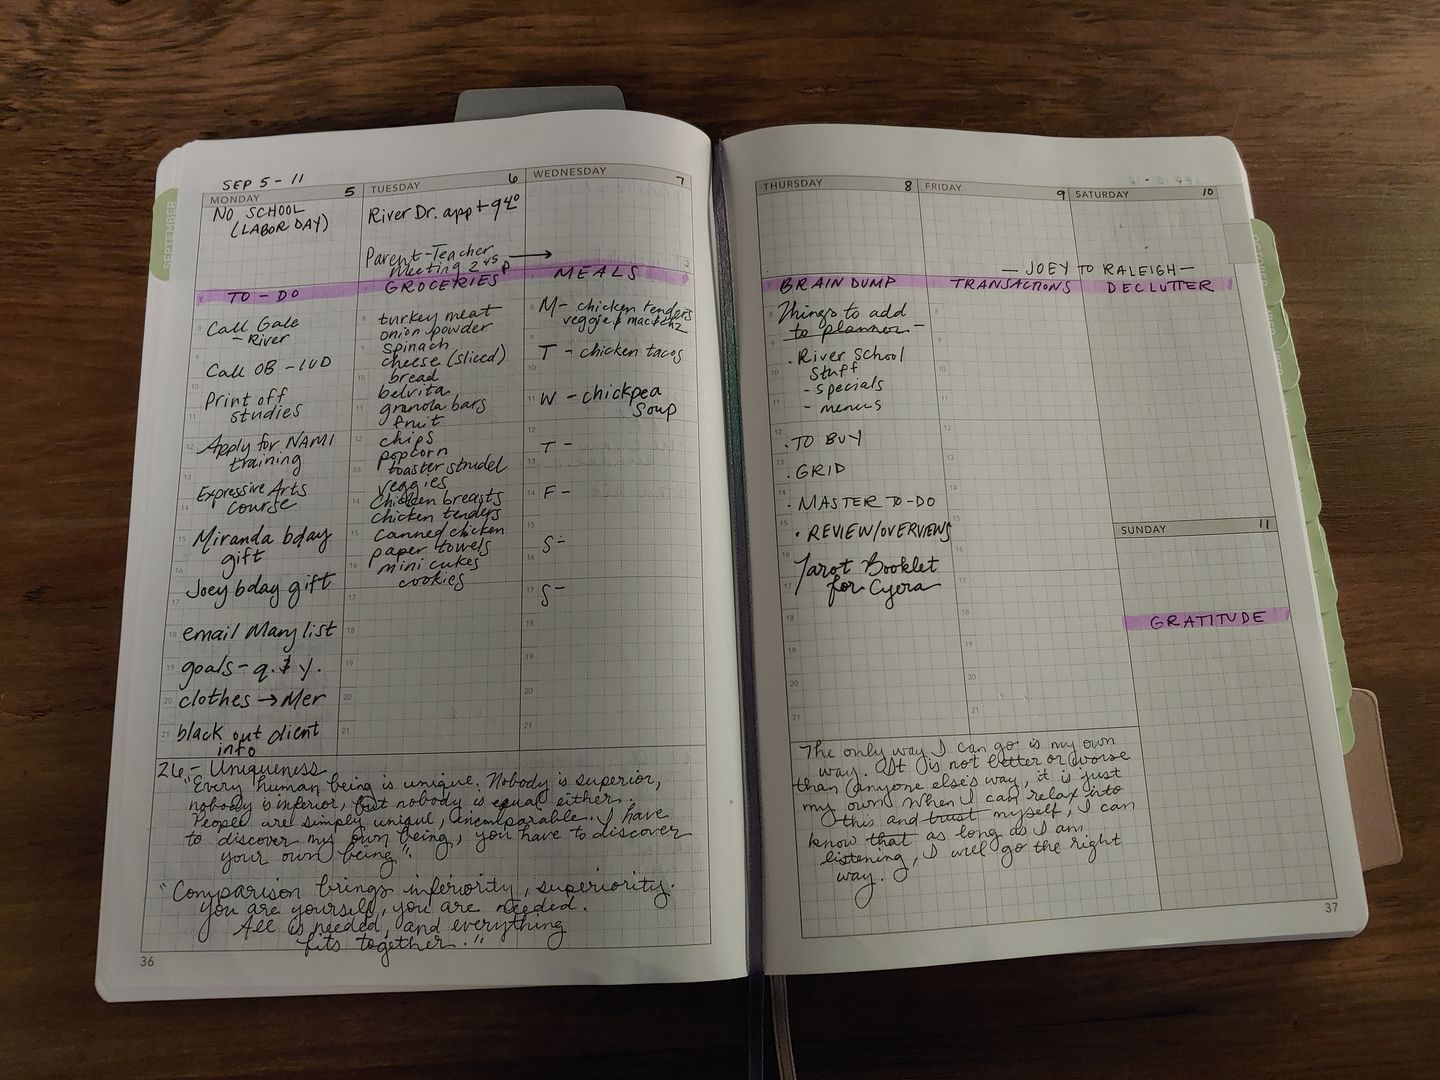 SEPTEMBER
SEP 5 - 11
MONDAY 5
NO SCHOOL
(LABOR DAY)
TUESDAY 6
River Dr. app +
Parent-Teacher
meeting
WEDNESDAY 7
TO - DO
Call Gale
- River
Call OB - IUD
Print off
studies
Apply for NAMI
training
Expressive Arts
course
Miranda bday
gift
Joey bday gift
email Mary list
goals - q. & y.
clothes → Mer
black out client
info
GROCERIES
turkey meat
onion powder
spinach
cheese (sliced)
bread
belvita
granola bars
fruit
chips
popcorn
toaster strudel
veggies
chicken breasts
chicken tenders
canned chicken
paper towels
mini cukes
cookies
MEALS
M - chicken tenders
veggies
T - chicken tacos
W - chickpea
soup
T -
F -
S -
S -
26 - Uniqueness
"Every human being is unique. Nobody is superior,
nobody is inferior, but nobody is equal either.
People are simply unique, incomparable. I have
to discover my own being, you have to discover
your own being."
"Comparison brings inferiority, superiority.
You are yourself, you are needed.
All is needed, and everything
fits together."
36
THURSDAY 8
FRIDAY 9
SATURDAY 10
— JOEY TO RALEIGH —
BRAIN DUMP
Things to add
to planner -
· River School
stuff
- specials
- menus
· TO BUY
· GRID
· MASTER TO-DO
· REVIEW/OVERVIEWS
Tarot Booklet
for Cyera
TRANSACTIONS
DECLUTTER
SUNDAY 11
GRATITUDE
The only way I can go is my own
way. It is not better or worse
than anyone else's way, it is just
my own. When I can relax into
this and trust myself, I can
know that as long as I am
listening, I will go the right
way.
37